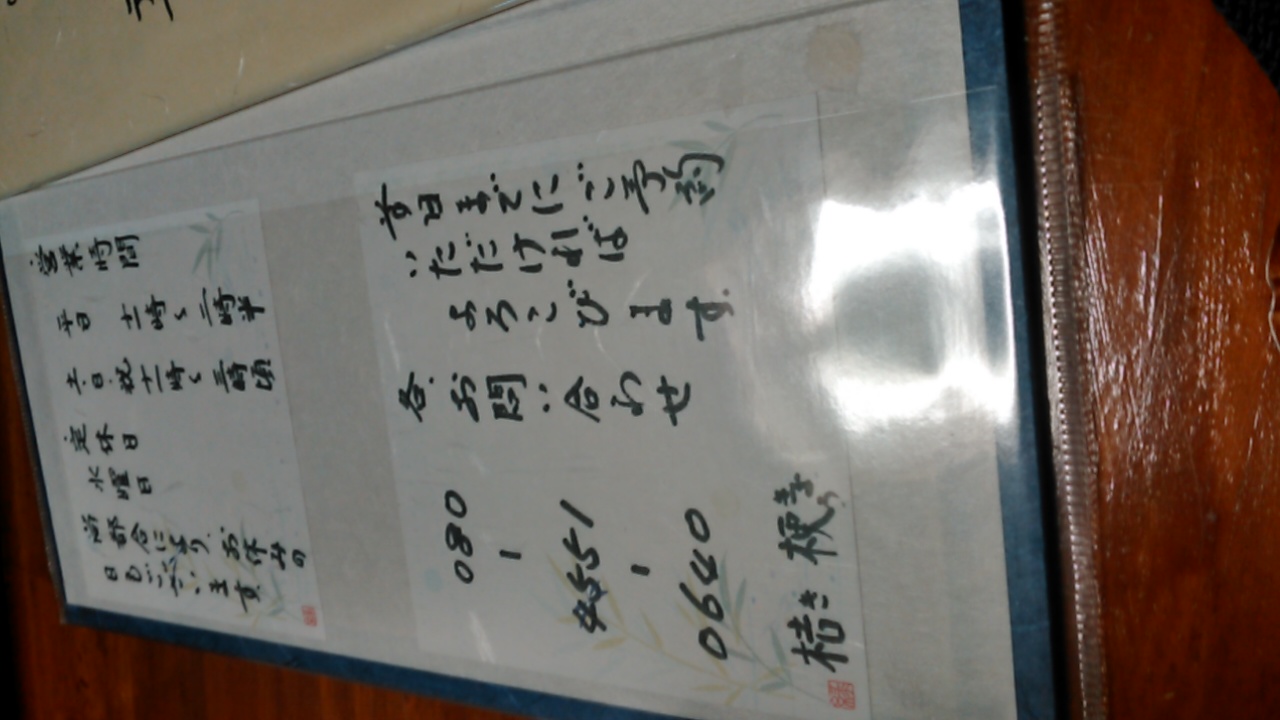 営業時間
平日 十一時〜二時半
土・日・祝 十一時〜三時頃
定休日
水曜日
尚都合により、お休みの
日もございます
前日までにご予約
いただければ
よろこびます。
各.お問い合わせ
080-4551-0640
桔梗
ききょう